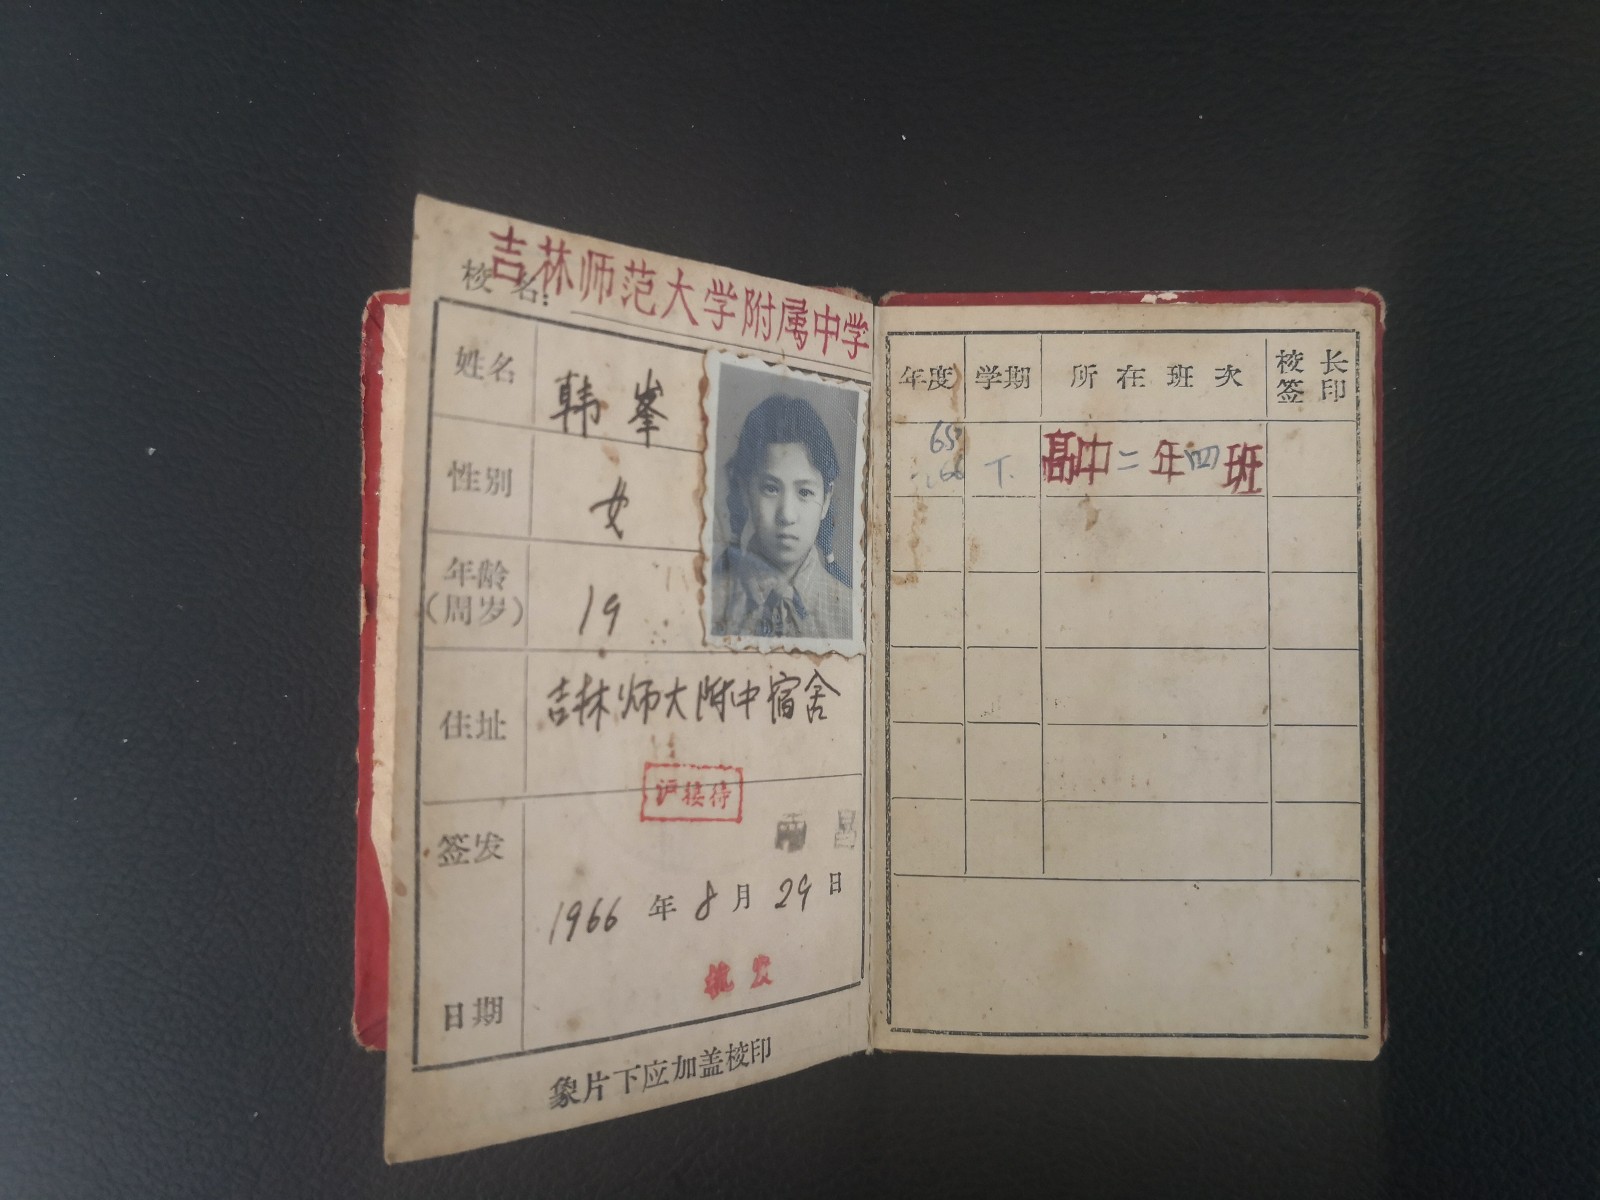 校名：吉林师范大学附属中学
姓名 韩峯
性别 女
年龄（周岁） 19
住址 吉林师大附中宿舍
沪接待
南昌
签发日期 1966年8月29日
象片下应加盖校印
年度 学期 所在班次 校长签印
65 66 下 高中二年四班